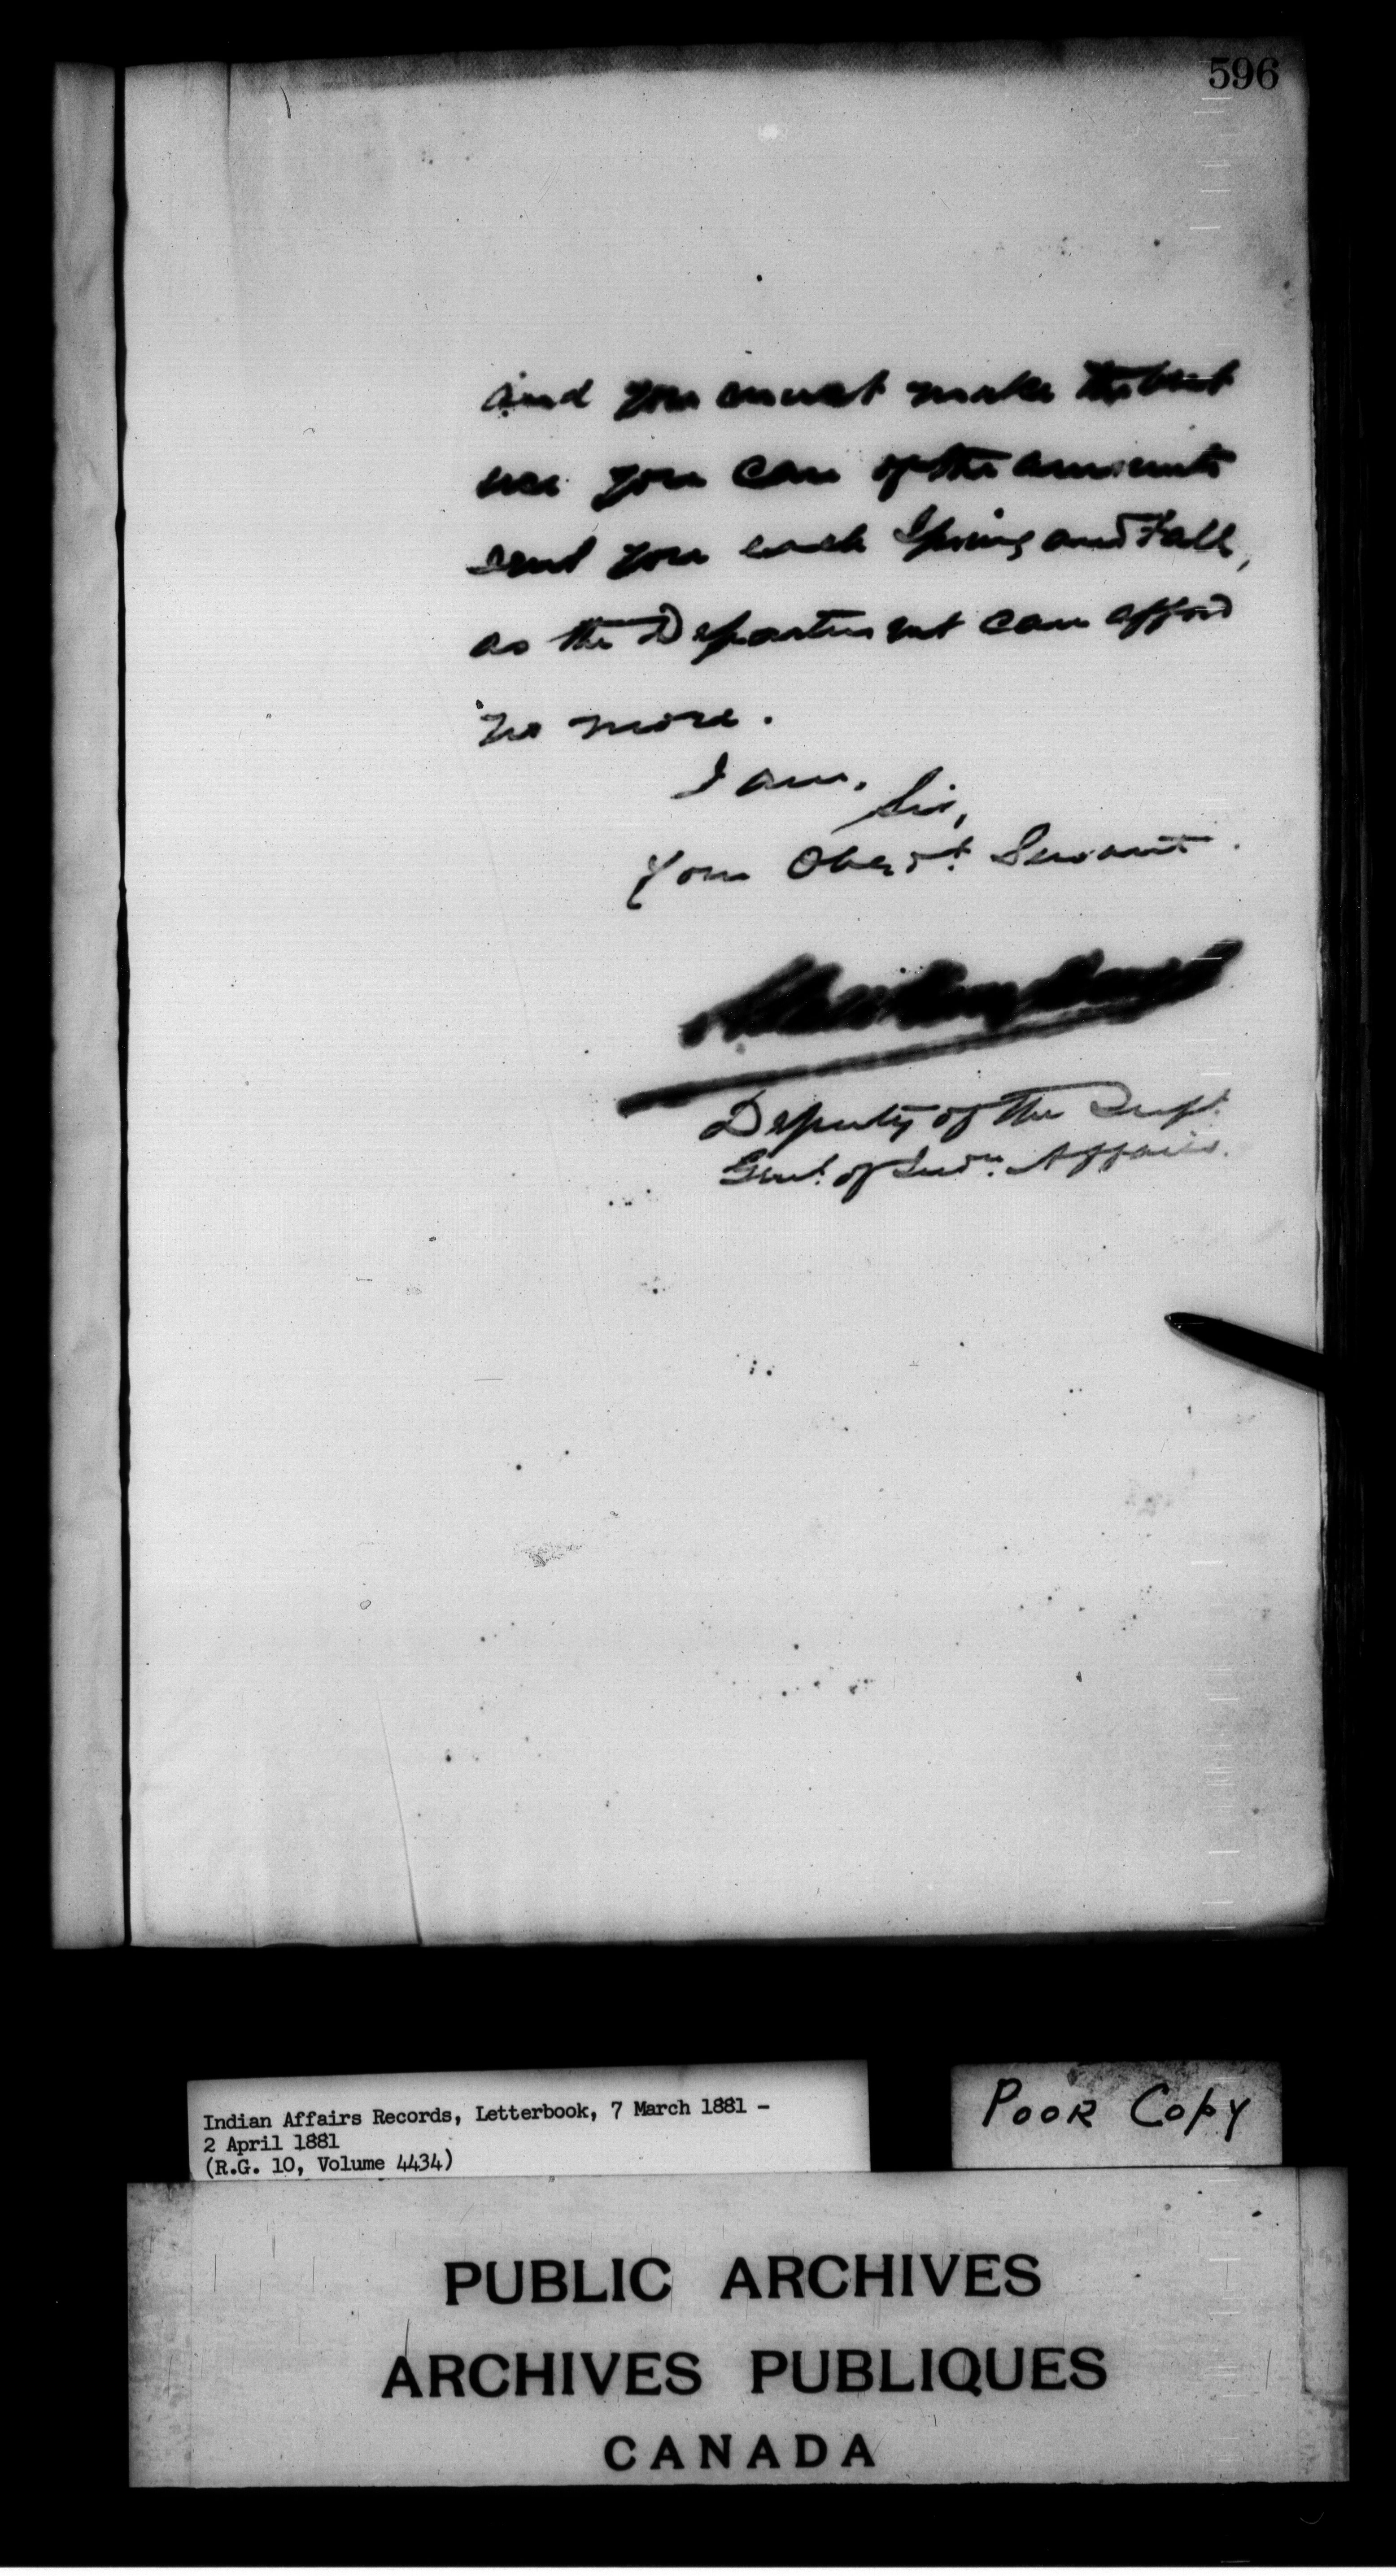 596
and you must make the best
use you can of the amounts
sent you each Spring and Fall,
as the Department can afford
no more.
I am,
Sir,
Your Obed't. Servant.
Deputy of the Supt.
Genl. of Indn. Affairs.
Indian Affairs Records, Letterbook, 7 March 1881 -
2 April 1881
(R.G. 10, Volume 4434)
POOR COPY
PUBLIC ARCHIVES
ARCHIVES PUBLIQUES
CANADA